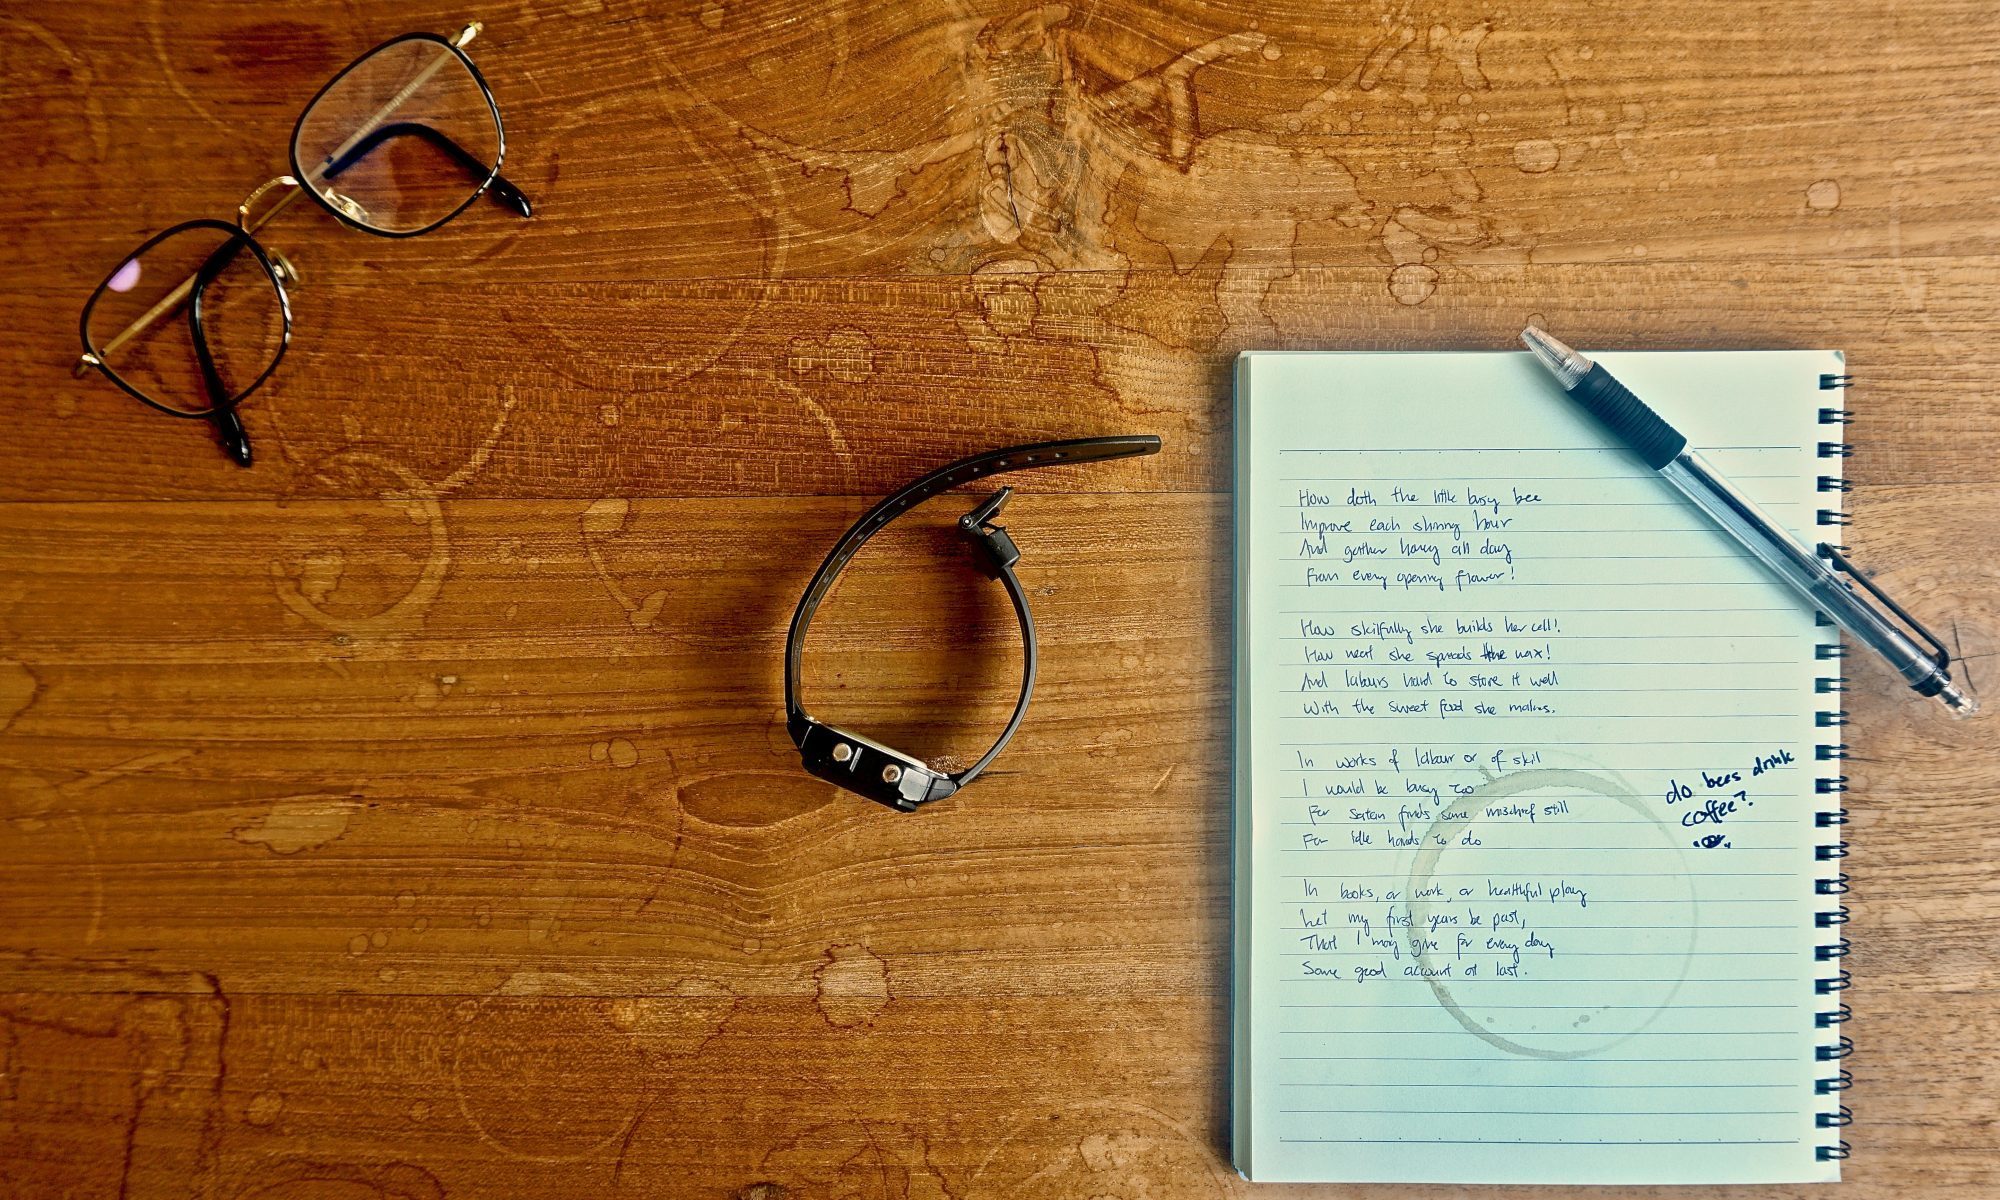 How doth the little busy bee
Improve each shining hour
And gather honey all day
From every opening flower!
How skilfully she builds her cell!
How neat she spreads the wax!
And labours hard to store it well
With the sweet food she makes.
In works of labour or of skill
I would be busy too
For Satan finds some mischief still
For idle hands to do
In books, or work, or healthful play
Let my first years be past,
That I may give for every day
Some good account at last.
do bees drink
coffee?